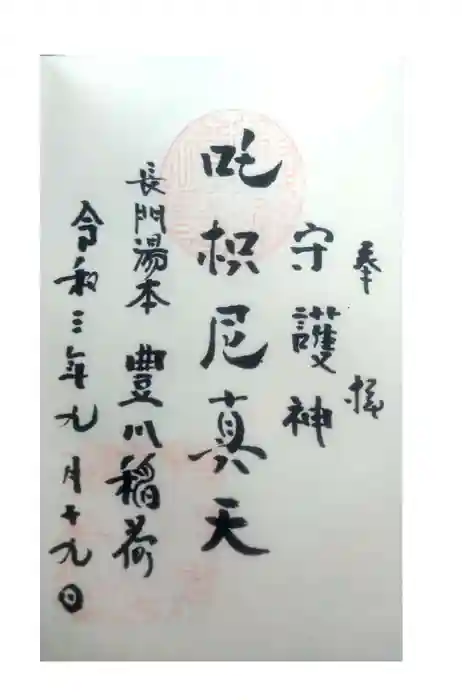 奉拝
守護神
吒枳尼真天
長門湯本 豊川稲荷
令和三年九月十九日